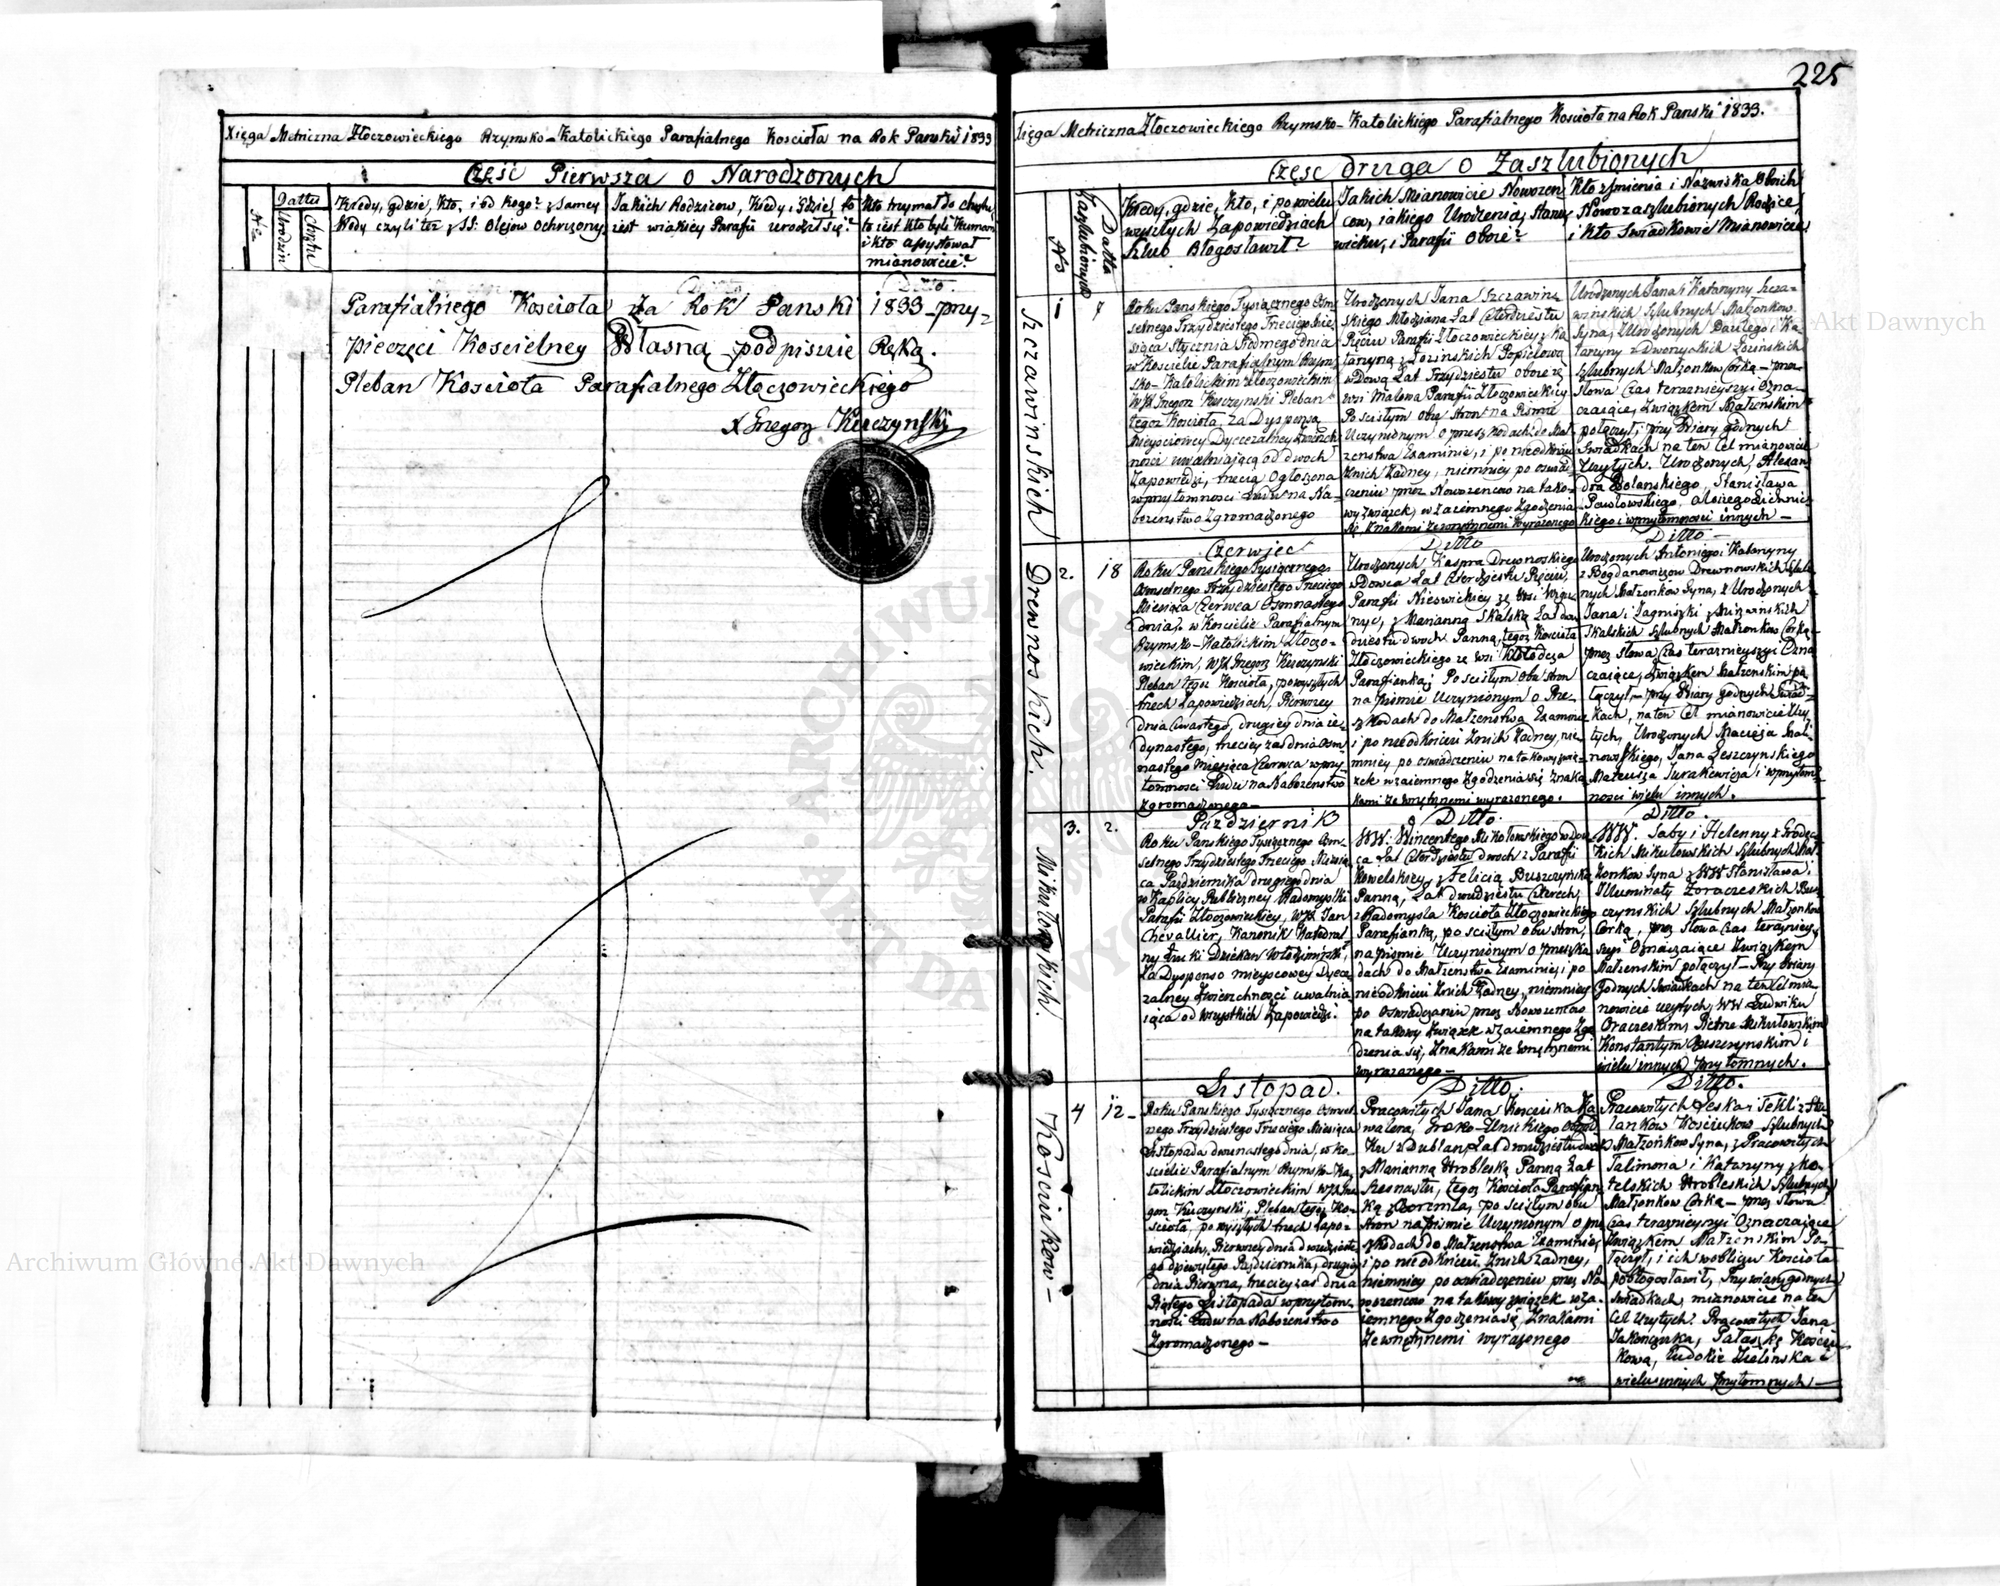 225
Xięga Metriczna Złoczowieckiego Rzymsko-Katolickiego Parafialnego Koscioła na Rok Panski 1833
Część Pierwsza o Narodzonych
Nro
Datta
Urodzin
Chrztu
Kiedy, gdzie, Kto, i od Kogo? z Samey
Wody czyli też z SS. Olejow Ochrzczony
Jakich Rodzicow, Kiedy, Gdzie, to
iest w iakiey Parafii urodził się?
Kto trzymał do chrztu
to iest Kto byli Kumowie
i kto assystował
mianowicie?
Parafialnego Koscioła za Rok Panski 1833 przy
Pieczęci Koscielney Własną podpisuie Ręką.
Pleban Koscioła Parafialnego Złoczowieckiego
X Grzegorz Kurczynski
Xięga Metriczna Złoczowieckiego Rzymsko-Katolickiego Parafialnego Koscioła na Rok Panski 1833.
Część druga o Zaszlubionych
Nro
Datta
Zaszlubionych
Kiedy, gdzie, Kto, i po wielu
wyszłych Zapowiedziach
Szlub Błogosławił?
Jakich Mianowicie Nowożeń
cow, iakiego Urodzenia, Stanu
wieku, i Parafii Oboie?
Kto z Imienia i Nazwiska Oboich
Nowozaszlubionych Rodzice,
i Kto Swiadkowie Mianowicie
Szczawinskich
1
7
Roku Panskiego Tysiącznego Osm
setnego Trzydziestego Trzeciego Mie
siąca Stycznia Siodmego dnia
w Kosciele Parafialnym Rzym
sko-Katolickim Złoczowieckim
WJX Grzegorz Kurczynski Pleban
tegoż Koscioła, za Dyspensą
mieyscowey Dyecezalney Zwierzch
nosci uwalniaiącą od dwoch
Zapowiedzi, trzecią Ogłoszoną
w przytomnosci Ludu na Na-
bożenstwo Zgromadzonego
Urodzonych Jana Szczawin
skiego Młodziana Lat Czterdziestu
Pięciu Parafii Złoczowieckiey z Ka
tarzyną z Łozinskich Popielową
wdową Lat Trzydziestu oboie ze
wsi Malowa Parafii Złoczowieckiey
Po scisłym obu stron na Pismie
Uczynionym o przeszkodach do Mał
żenstwa Examinie, i po nieodkryciu
Znich Żadney, niemniey po oswiad
czeniu przez Nowożencow na tako-
wy związek, wzaiemnego zgodzenia
się, Znakami zewnętrznemi wyrażonego
Urodzonych Jana i Katarzyny Szcza-
winskich Szlubnych Małżonkow
Syna, z Urodzonych Daniłego i Ka
tarzyny z Dwonyckich Łozinskich
Szlubnych Małżonkow Corką - przez
słowa Czas teraznieyszy Ozna
czaiące, związkiem Małżenskim
połączył, przy Wiary godnych
Swiadkach na ten Cel mianowicie
Użytych. Urodzonych, Alexan
dra Bolanskiego, Stanisława
Pawłowskiego
kiego i w przytomnosci innych -
Drewnoskich.
2.
18
Czerwiec
Roku Panskiego Tysiącznego
Osmsetnego Trzydziestego Trzeciego
Miesiąca Czerwca Osmnastego
dnia, w Kosciele Parafialnym
Rzymsko-Katolickim Złoczo-
wieckim, WJX Grzegorz Kurczynski
Pleban tegoż Koscioła, po wyszłych
trzech Zapowiedziach, Pierwszey
dnia Czwartego, drugiey dnia ie
dynastego, trzeciey zaś dnia Osm
nastego Miesiąca Czerwca w przy
tomnosci Ludu na Nabożenstwo
Zgromadzonego -
Ditto
Urodzonych Kaspra Drewnoskiego
Wdowca Lat Czterdziestu Pięciu,
Parafii Nieswickiey ze Wsi
z Marianną Skalską Lat dwu
dziestu dwoch Panną, tegoż Koscioła
Złoczowieckiego ze wsi Kołodeża
Parafianką; Po scisłym obu stron
na Pismie Uczynionym o Prze-
szkodach do Małżenstwa Examinie
i po nieodkryciu Znich Żadney, nie
mniey po oswiadczeniu na takowy zwią
zek wzaiemnego zgodzenia się Znaka
kami zewnętrznemi wyrażonego.
Ditto
Urodzonych Antoniego i Katarzyny
z Bogdanowiczow Drewnowskich Szlub
nych Małżonkow Syna, z Urodzonych
Jana i Jagniszki z
Skalskich Szlubnych Małżonkow Corką -
przez słowa Czas teraznieyszy Ozna
czaiące, Związkiem Małżenskim po
łączył - przy Wiary godnych Swiad-
kach, na ten Cel mianowicie Uży
tych, Urodzonych Macieja
nowskiego, Jana Leszczynskiego
Mateusza Jurakiewicza i w przytom
nosci wielu innych.
Mikułowskich.
3.
2.
Październik
Roku Panskiego Tysiącznego Osm
setnego Trzydziestego Trzeciego Miesią
ca Października drugiego dnia
w Kaplicy Publiczney Radomyślki
Parafii Złoczowieckiey, WJX Jan
Chevallier, Kanonik Katedral
ny Łucki Dziekan Włodzimirski,
za Dyspensą mieyscowey Dyece
zalney Zwierzchnosci uwalnia
iącą od wszystkich Zapowiedzi.
Ditto.
WW. Wincentego Mikołowskiego wdow
ca Lat Czterdziestu dwoch z Parafii
Kowelskiey, z Felicią Buszczynską
Panną, Lat dwudziestu Czterech,
z Radomysla Koscioła Złoczowieckiego
Parafianką, po scisłym obu stron,
na pismie Uczynionym o przeszko
dach do Małżenstwa Examinie, i po
nieodkryciu Znich Żadney, niemniey
po oswiadczeniu przez Nowożencow
na takowy Związek wzaiemnego Zgo
dzenia się, Znakami zewnętrznemi
wyrażonego -
Ditto.
WW. Saby i Helenny z Grodec
kich Mikułowskich Szlubnych Mał
żonkow Syna z WW Stanisława i
Illuminaty Zoraczeskich Busz
czynskich Szlubnych Małżonkow
Corką, przez słowa Czas teraźniey
szy Oznaczaiące Związkiem
Małżenskim połączył - Przy Wiary
godnych Swiadkach na ten Cel mia
nowicie użytych, WW Ludwiku
Oraczeskim, Pietrze Mikułowskim
Konstantym Buszczynskim i
wielu innych Przytomnych.
Kosciukow -
4
12 -
Listopad.
Roku Panskiego Tysiącznego Osmset
nego Trzydziestego Trzeciego Miesiąca
Listopada dwunastego dnia, w Ko-
sciele Parafialnym Rzymsko-Ka-
tolickim Złoczowieckim WJX Grze
gorz Kurczynski, Pleban tegoż Ko-
scioła, po wyszłych trzech Zapo-
wiedziach, Pierwszey dnia dwudzieste
go dziewiątego Października, drugiey
dnia Pierwszego, trzeciey zas dnia
Piątego Listopada w przytom-
nosci Ludu na Nabożenstwo
Zgromadzonego -
Ditto.
Pracowitych Jana Kosciuka Ka
walera, Greko-Unickiego
ku z Dublan, Lat dwudziestu dwoch
z Marianną Wrobleską Panną Lat
szesnastu, tegoż Koscioła Parafian
ką z Boremla, po scisłym obu
stron na pismie Uczynionym o prze
szkodach do Małżenstwa Examinie,
i po nieodkryciu Znich Żadney,
niemniey po oswiadczeniu przez No
wożencow na takowy związek wza-
iemnego Zgodzenia się, Znakami
Zewnętrznemi wyrażonego
Ditto.
Pracowitych Leska i Tekli z
Kosciukow Szlubnych
Małżonkow Syna, z Pracowitych
Talimona i Katarzyny z Ko-
telskich Wrobleskich Szlubnych
Małżonkow Corką - przez słowa
Czas teraznieyszy Oznaczaiące
Związkiem Małżenskim Po-
łączył, i ich w obliczu Koscioła
pobłogosławił, Przy wiary godnych
Swiadkach, mianowicie na ten
Cel Użytych. Pracowitych Jana
Jakończuka, Pałaszkę Kosciu
kową, Eudokię Zielinską i
wielu innych Przytomnych -
ARCHIWUM GŁÓWNE AKT DAWNYCH
Archiwum Główne Akt Dawnych
Akt Dawnych